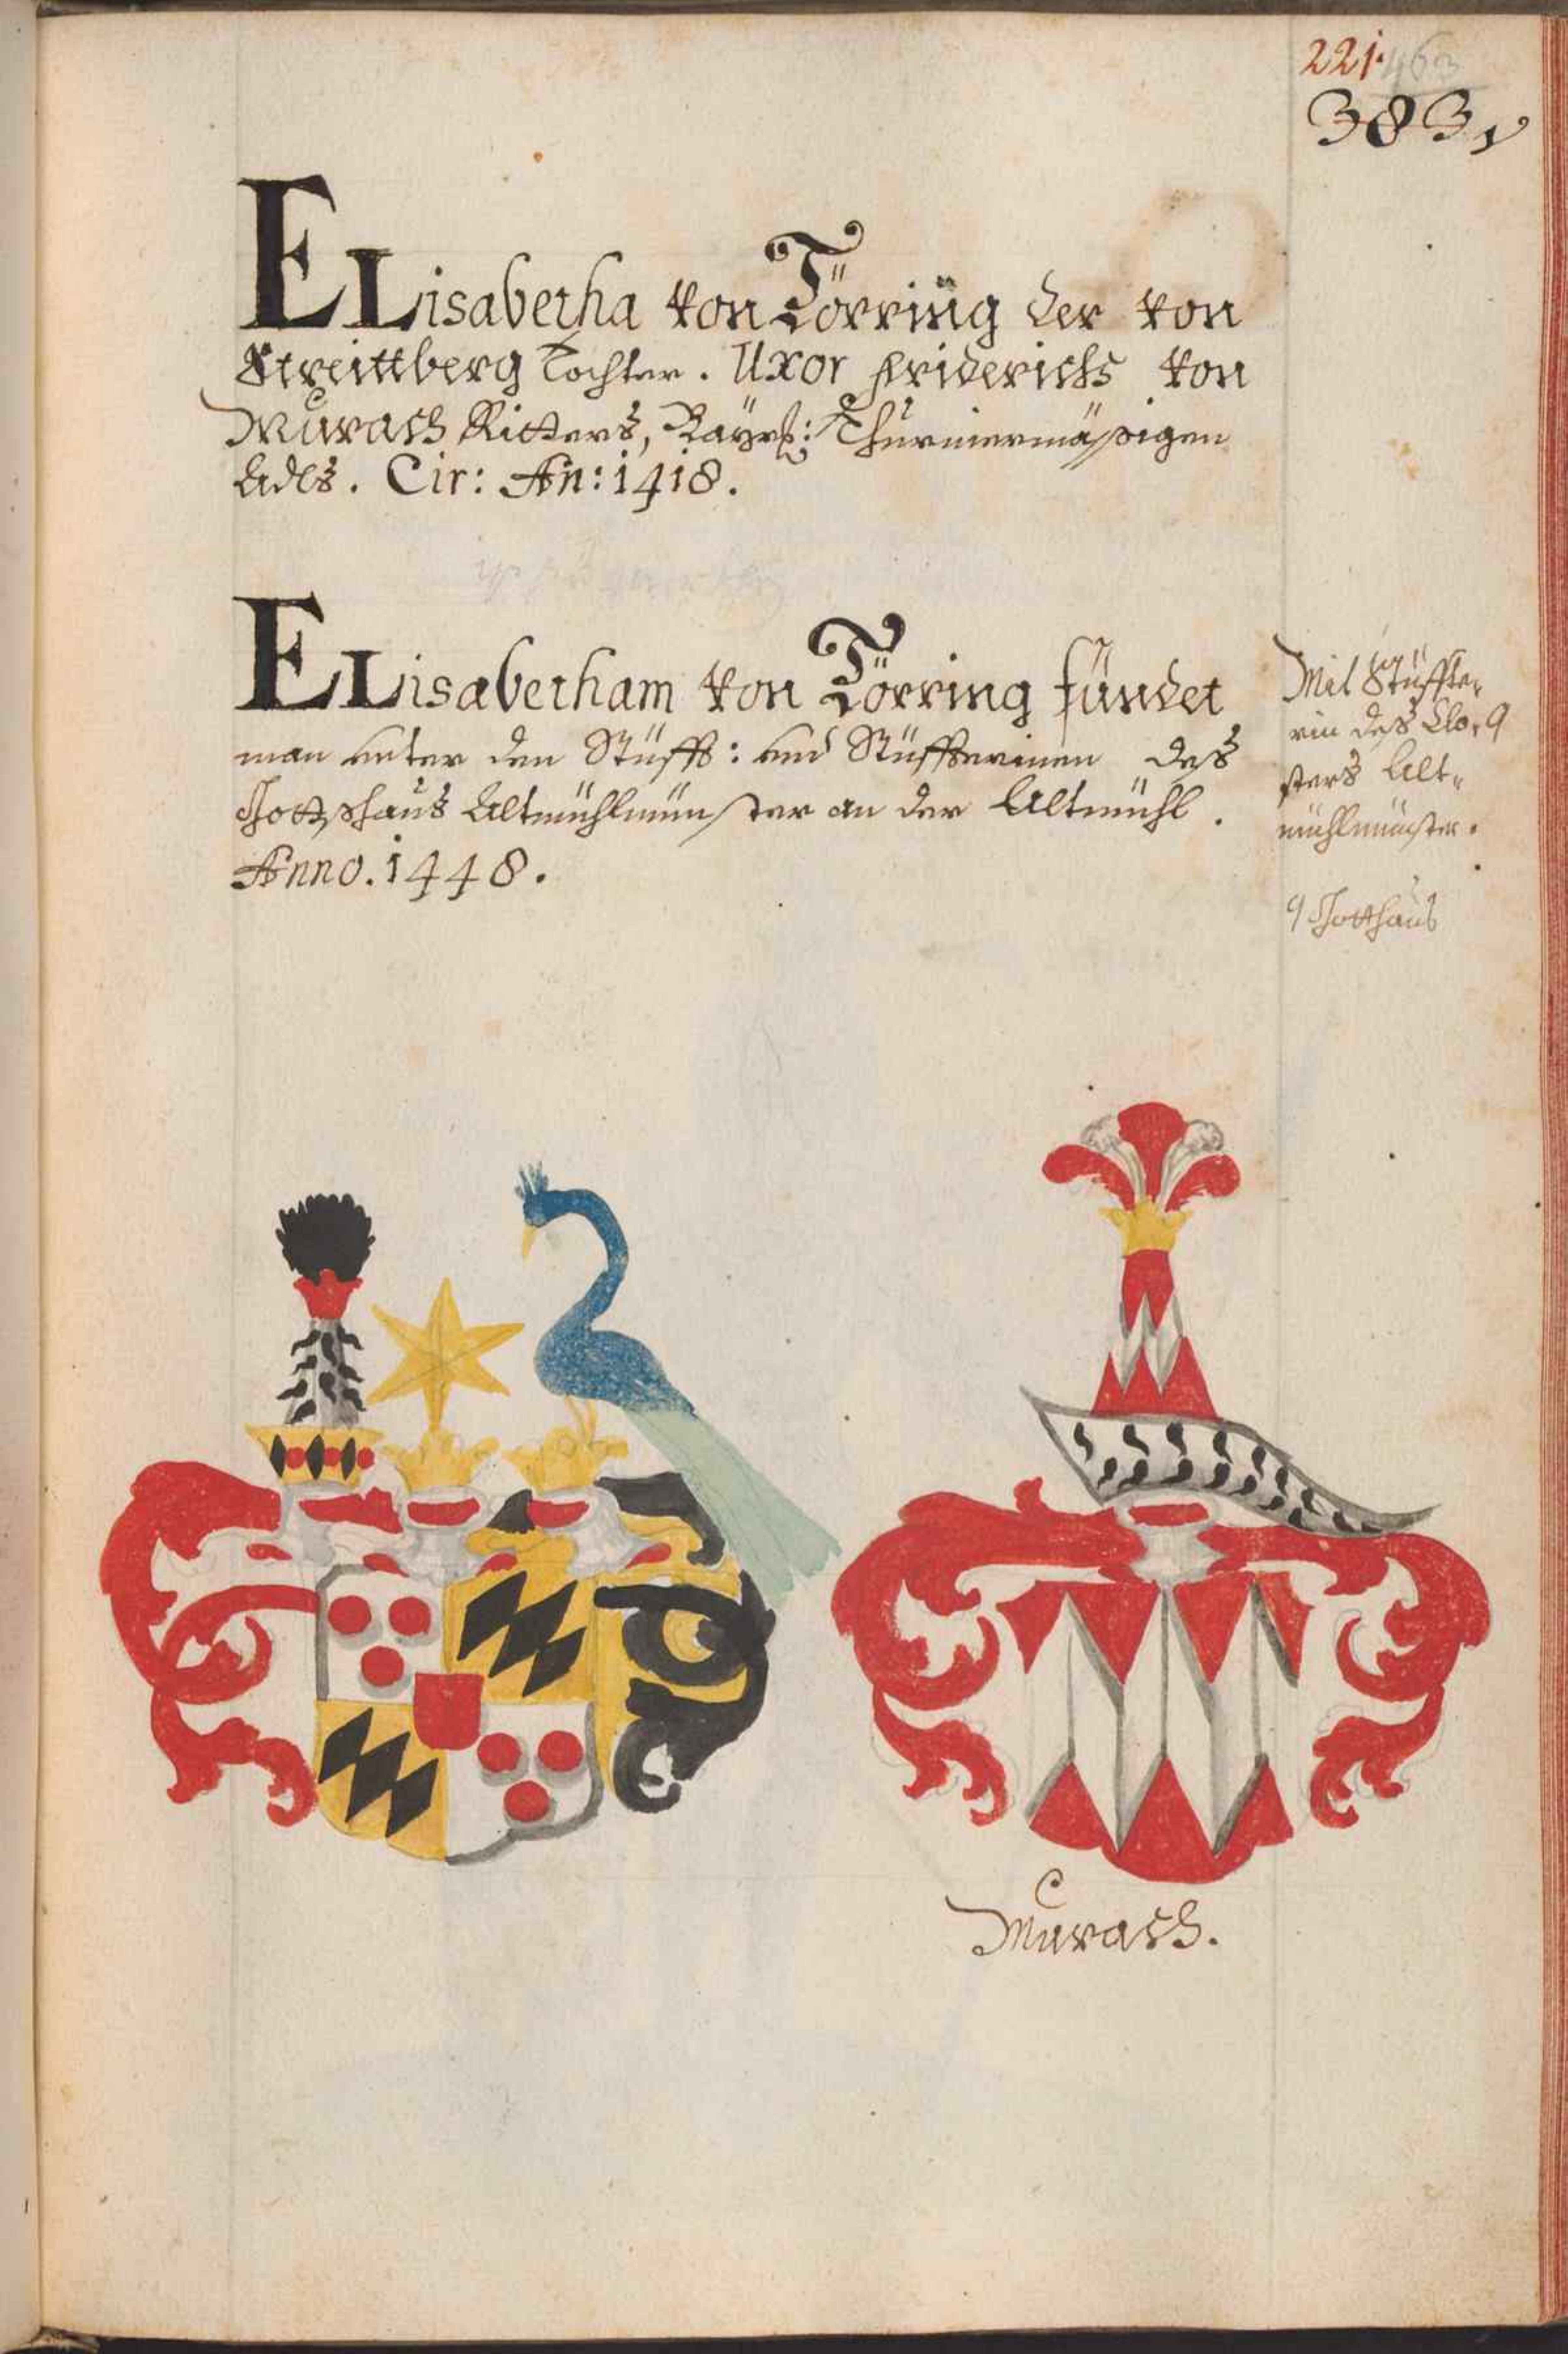 221.
463
383
ELisabetha von Törring der von
Streittberg Tochter. Uxor Friderichs von
Murach Ritters, Bayrß: Thurniermäßigen
Adls. Cir: An: 1418.
ELisabetham von Törring fündet
man unter den Stüfft: und Stüffterinen deß
Gottshauß Altmühlmünster an der Altmühl.
Anno. 1448.
Mit Stüffte,
rin deß Clo,
sters Alt„
mühlmünster.
Gotthauß
Murach.